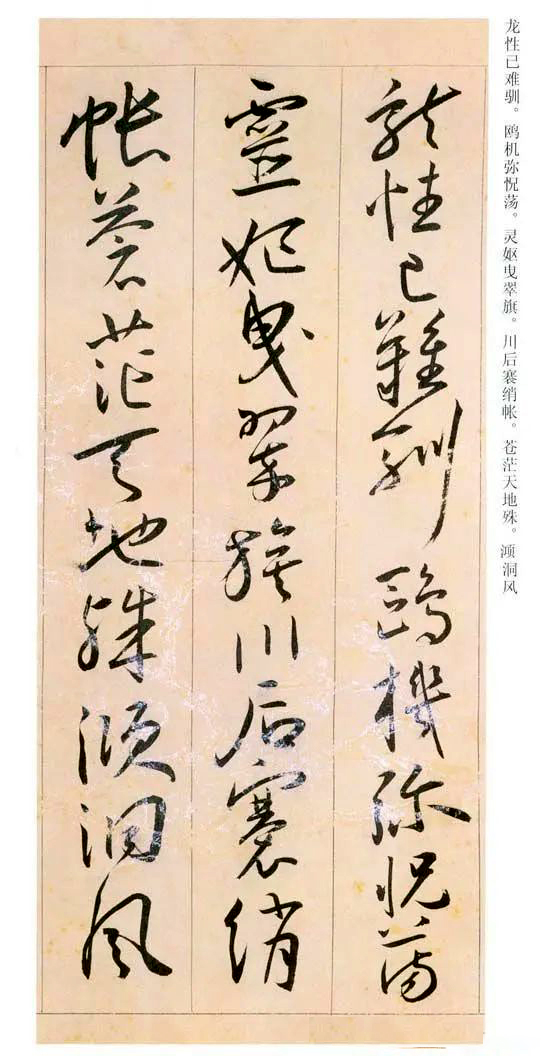 龙性已难驯。鸥机弥怳荡。灵妪曳翠旗。川后褰绡帐。苍茫天地殊。澒洞风
龍性已難馴鷗機弥怳蕩
靈妃曳翠旗川后褰綃
帳蒼茫天地殊澒洞風